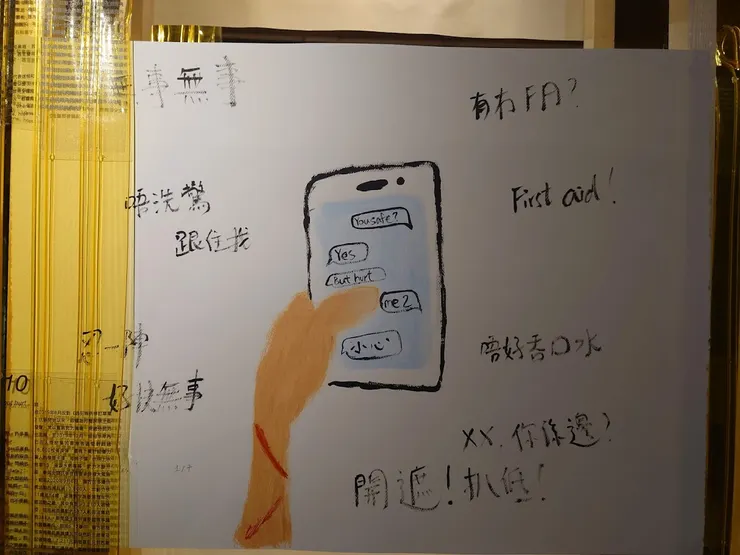 無事無事
有冇FA?
唔洗驚
跟住我
First aid!
You safe?
Yes
But hurt
me2
小心
忍一陣
好快無事
唔好吞口水
XY, 你係邊?
開遮!扒低!